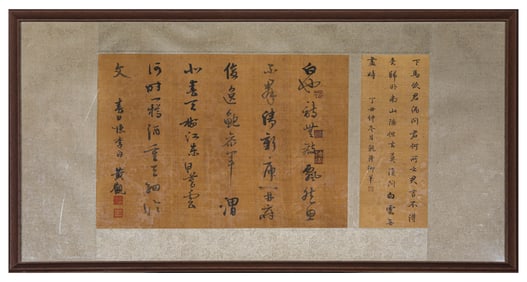 下馬飲君酒問君何所之君言不得
意歸臥南山陲但去莫復問白雲無
盡時 丁丑仲冬月
白也詩無敵飄然思
不群清新庾開府
俊逸鮑參軍渭
北春天樹江東日暮雲
何時一樽酒重與細論
文 春日憶李白